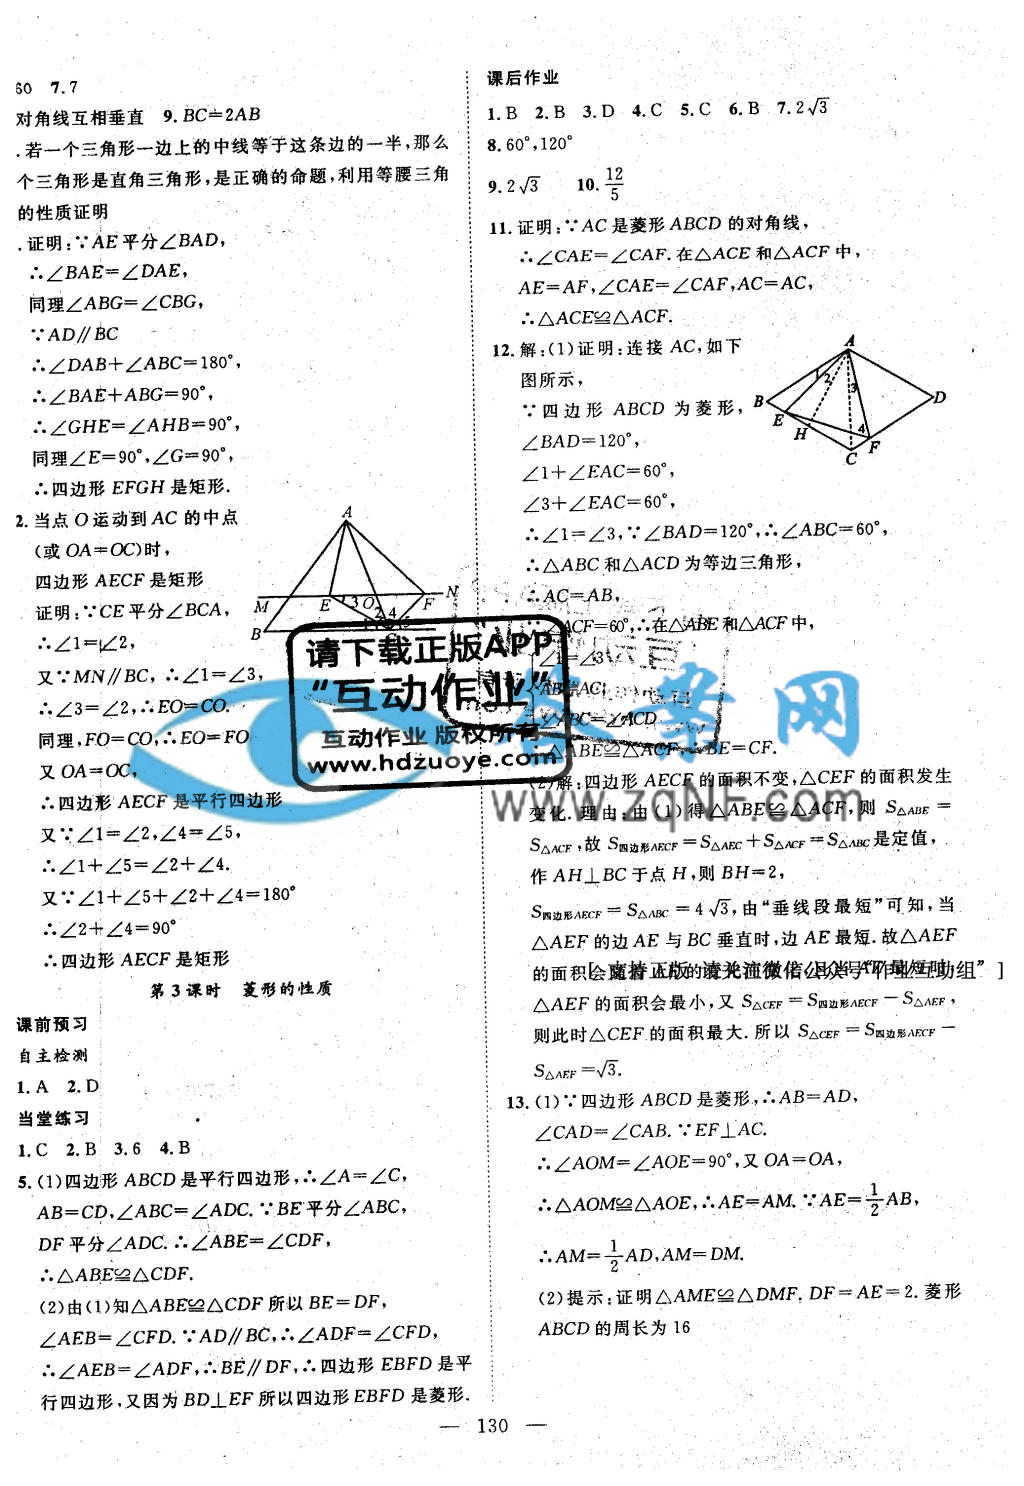 60 7.7
对角线互相垂直 9.BC=2AB
.若一个三角形一边上的中线等于这条边的一半,那么
个三角形是直角三角形,是正确的命题,利用等腰三角
的性质证明
.证明:∵AE平分∠BAD,
∴∠BAE=∠DAE,
同理∠ABG=∠CBG,
∵AD∥BC
∴∠DAB+∠ABC=180°,
∴∠BAE+ABG=90°,
∴∠GHE=∠AHB=90°,
同理∠E=90°,∠G=90°,
∴四边形EFGH是矩形.
2.当点O运动到AC的中点
(或OA=OC)时,
四边形AECF是矩形
证明:∵CE平分∠BCA,
∴∠1=∠2,
又∵MN∥BC,∴∠1=∠3,
∴∠3=∠2,∴EO=CO.
同理,FO=CO,∴EO=FO
又OA=OC,
∴四边形AECF是平行四边形
又∵∠1=∠2,∠4=∠5,
∴∠1+∠5=∠2+∠4.
又∵∠1+∠5+∠2+∠4=180°
∴∠2+∠4=90°
∴四边形AECF是矩形
A
M E 1 3 O F N
2 4
B
第3课时 菱形的性质
课前预习
自主检测
1.A 2.D
当堂练习
1.C 2.B 3.6 4.B
5.(1)四边形ABCD是平行四边形,∴∠A=∠C,
AB=CD,∠ABC=∠ADC.∵BE平分∠ABC,
DF平分∠ADC.∴∠ABE=∠CDF.
∴△ABE≌△CDF.
(2)由(1)知△ABE≌△CDF所以BE=DF,
∠AEB=∠CFD.∵AD∥BC,∴∠ADF=∠CFD.
∴∠AEB=∠ADF,∴BE∥DF,∴四边形EBFD是平
行四边形,又因为BD⊥EF所以四边形EBFD是菱形.
课后作业
1.B 2.B 3.D 4.C 5.C 6.B 7.2√3
8.60°,120°
9.2√3 10.12/5
11.证明:∵AC是菱形ABCD的对角线,
∴∠CAE=∠CAF.在△ACE和△ACF中,
AE=AF,∠CAE=∠CAF,AC=AC,
∴△ACE≌△ACF.
12.解:(1)证明:连接AC,如下
图所示,
∵四边形ABCD为菱形,
∠BAD=120°,
∠1+∠EAC=60°,
∠3+∠EAC=60°,
∴∠1=∠3,∵∠BAD=120°,∴∠ABC=60°,
∴△ABC和△ACD为等边三角形,
∴AC=AB,
∠ACF=60°,∴在△ABE和△ACF中,
∠1=∠3
AB=AC,
∠ABC=∠ACD
∴△ABE≌△ACF.∴BE=CF.
A
1 2 3
B D
E H 4 F
C
(2)解:四边形AECF的面积不变,△CEF的面积发生
变化.理由:由(1)得△ABE≌△ACF,则S△ABE=
S△ACF,故S四边形AECF=S△AEC+S△ACF=S△ABC是定值,
作AH⊥BC于点H,则BH=2,
S四边形AECF=S△ABC=4√3,由“垂线段最短”可知,当
△AEF的边AE与BC垂直时,边AE最短.故△AEF
的面积会随着AE
[支持正版 请关注微信公众号“作业互助组”]
△AEF的面积会最小,又S△CEF=S四边形AECF-S△AEF,
则此时△CEF的面积最大.所以S△CEF=S四边形AECF-
S△AEF=√3.
13.(1)∵四边形ABCD是菱形,∴AB=AD,
∠CAD=∠CAB.∵EF⊥AC.
∴∠AOM=∠AOE=90°,又OA=OA,
∴△AOM≌△AOE,∴AE=AM.∵AE=1/2AB,
∴AM=1/2AD,AM=DM.
(2)提示:证明△AME≌△DMF.DF=AE=2.菱形
ABCD的周长为16
请下载正版APP
“互动作业”
互动作业 版权所有
www.hdzuoye.com
答案网
www.zqNF.com
— 130 —